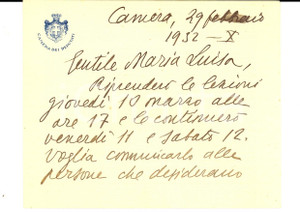 CAMERA DEI DEPUTATI
Camera, 29 febbraio
1932 - X
Gentile Maria Luisa,
Riprenderò le lezioni
giovedì 10 marzo alle
ore 17 e le continuerò
venerdì 11 e sabato 12.
Voglia comunicarlo alle
persone che desiderano